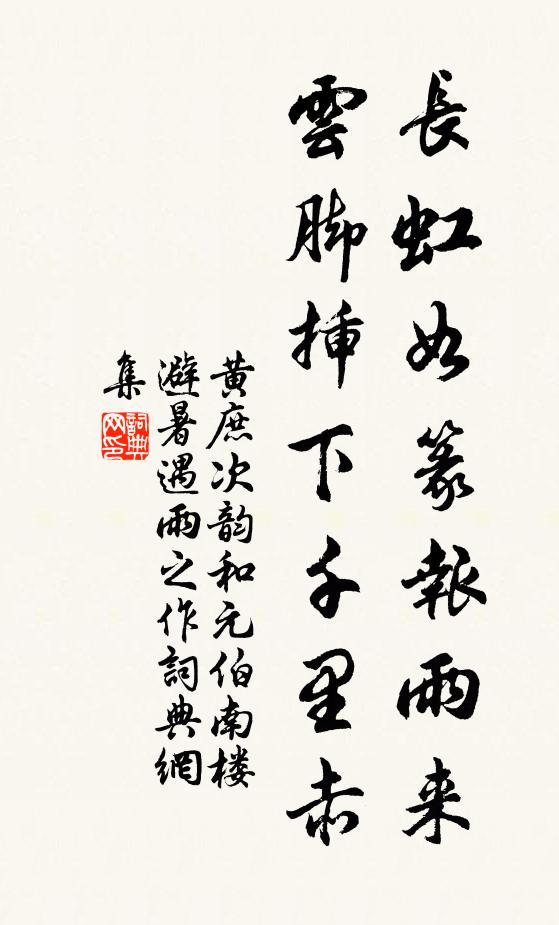 長虹如篆報雨来
雲脚挿下千里赤
黃庶次韵和元伯南楼
避暑遇雨之作詞典網
集
詞典
网印